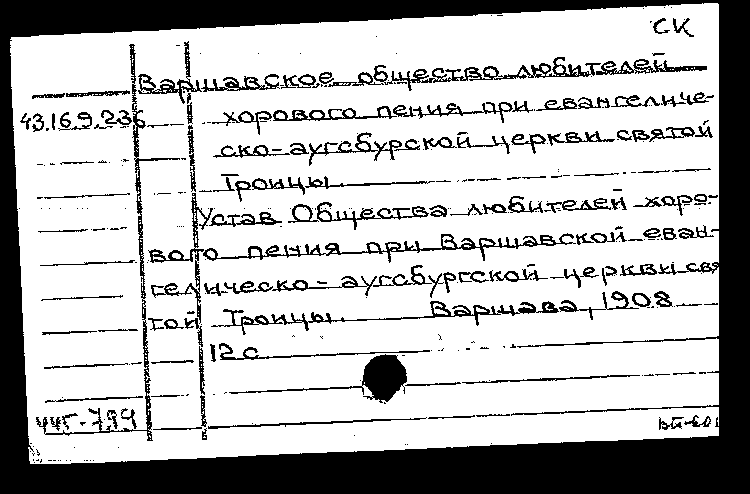 СК
Варшавское общество любителей
43.16.9.236 хорового пения при евангеличе-
ско-аугсбурской церкви святой
Троицы
Устав Общества любителей хоро-
вого пения при Варшавской еван-
гелическо-аугсбургской церкви свя
той Троицы. Варшава, 1908
12 с
445-799